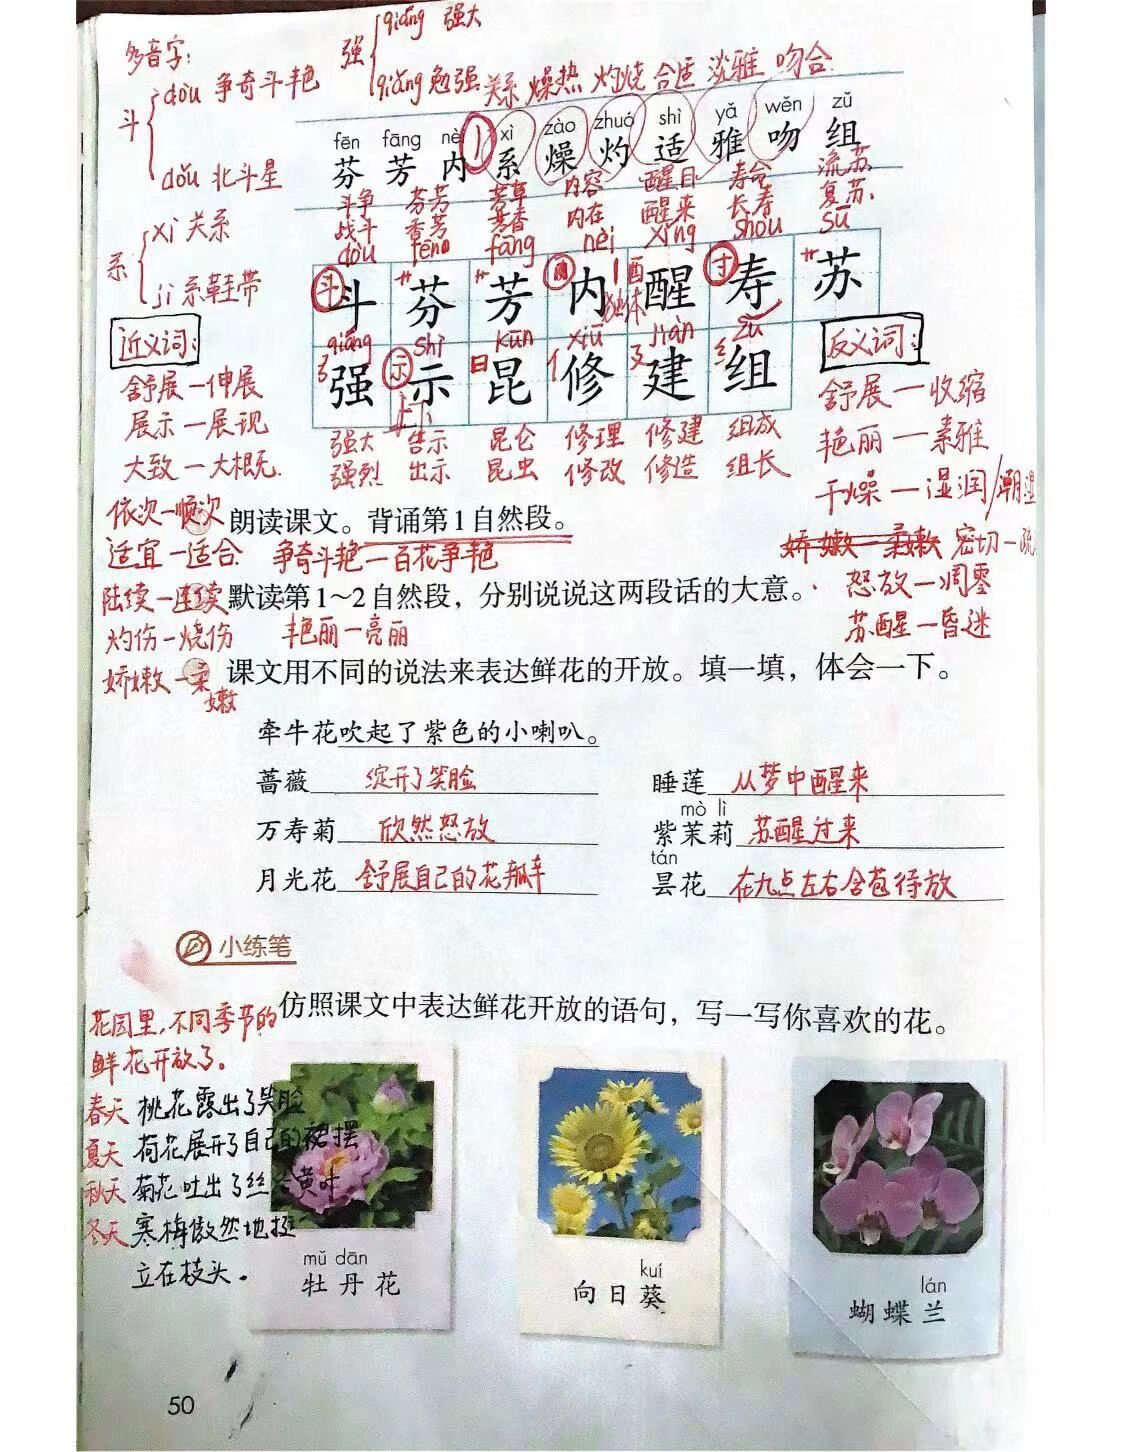 多音字:
强 qiáng 强大
qiǎng 勉强
斗 dòu 争奇斗艳
dǒu 北斗星
关系 燥热 灼烧 合适 淡雅 吻合
fēn fāng nèi xì zào zhuó shì yǎ wěn zǔ
芬 芳 内 系 燥 灼 适 雅 吻 组
系 xì 关系
jì 系鞋带
斗争 芬芳 芳草 内容 醒目 寿命 流苏
战斗 香芳 芳香 内在 醒来 长寿 复苏
dòu fēn fāng nèi xǐng shòu sū
斗 芬 芳 内 醒 寿 苏
斗 艹 艹 独体 酉 寸 艹
qiáng shì kūn xiū jiàn zǔ
强 示 昆 修 建 组
弓 示 日 亻 廴 纟
上下
强大 告示 昆仑 修理 修建 组成
强烈 出示 昆虫 修改 修造 组长
近义词:
舒展—伸展
展示—展现
大致—大概
依次—顺次
适宜—适合 争奇斗艳—百花争艳
陆续—连续
灼伤—烧伤 艳丽—亮丽
娇嫩—柔嫩
反义词:
舒展—收缩
艳丽—素雅
干燥—湿润/潮湿
娇嫩—柔嫩 密切—疏
怒放—凋零
苏醒—昏迷
朗读课文。背诵第1自然段。
默读第1~2自然段，分别说说这两段话的大意。
课文用不同的说法来表达鲜花的开放。填一填，体会一下。
牵牛花吹起了紫色的小喇叭。
蔷薇 绽开了笑脸
睡莲 从梦中醒来
万寿菊 欣然怒放
mò lì
紫茉莉 苏醒过来
月光花 舒展自己的花瓣
tán
昙花 在九点左右含苞待放
小练笔
仿照课文中表达鲜花开放的语句，写一写你喜欢的花。
花园里,不同季节的
鲜花开放了。
春天 桃花露出了笑脸
夏天 荷花展开了自己的裙摆
秋天 菊花吐出了丝 黄叶
冬天 寒梅傲然地挺
立在枝头。
mǔ dān
牡丹花
kuí
向日葵
lán
蝴蝶兰
50